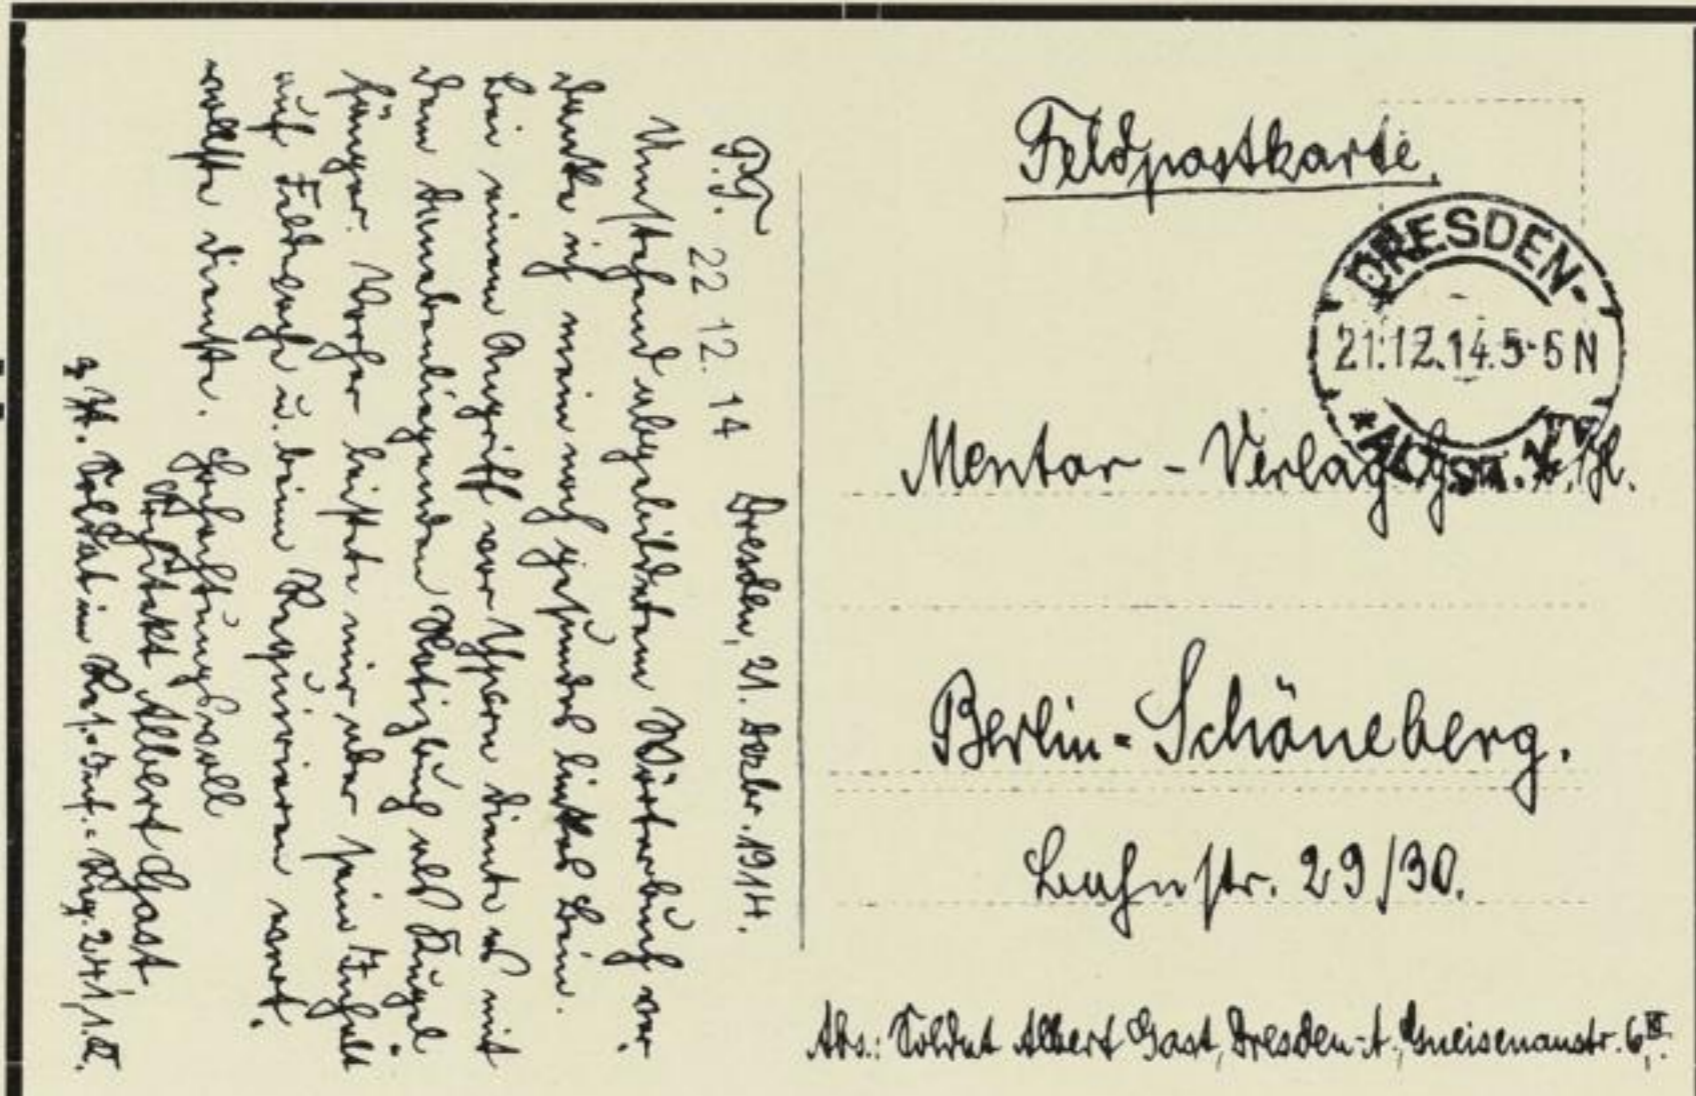 Feldpostkarte.
DRESDEN-
21.12.14.5-6N
*ALTST.
Mentor-Verlag
Berlin-Schöneberg.
Bahnstr. 29/30.
Abs.: Soldat Albert Gast, Dresden-A., Gneisenaustr. 6
Dresden, 21. Dezbr. 1914.
22 12. 14
Umstehend abgebildetem Wörterbuch ver-
danke ich mein noch gesundes linkes Bein.
Bei einem Angriff vor Ypern diente es mit
dem danebenliegenden Notizbuch als Kugel-
fänger. Vorher leistete mir aber sein Inhalt
auf Feldwache u. beim Requirieren wert-
vollste Dienste. Hochachtungsvoll
Architekt Albert Gast,
z. Zt. Soldat im Res.-Inf.-Reg. 241,